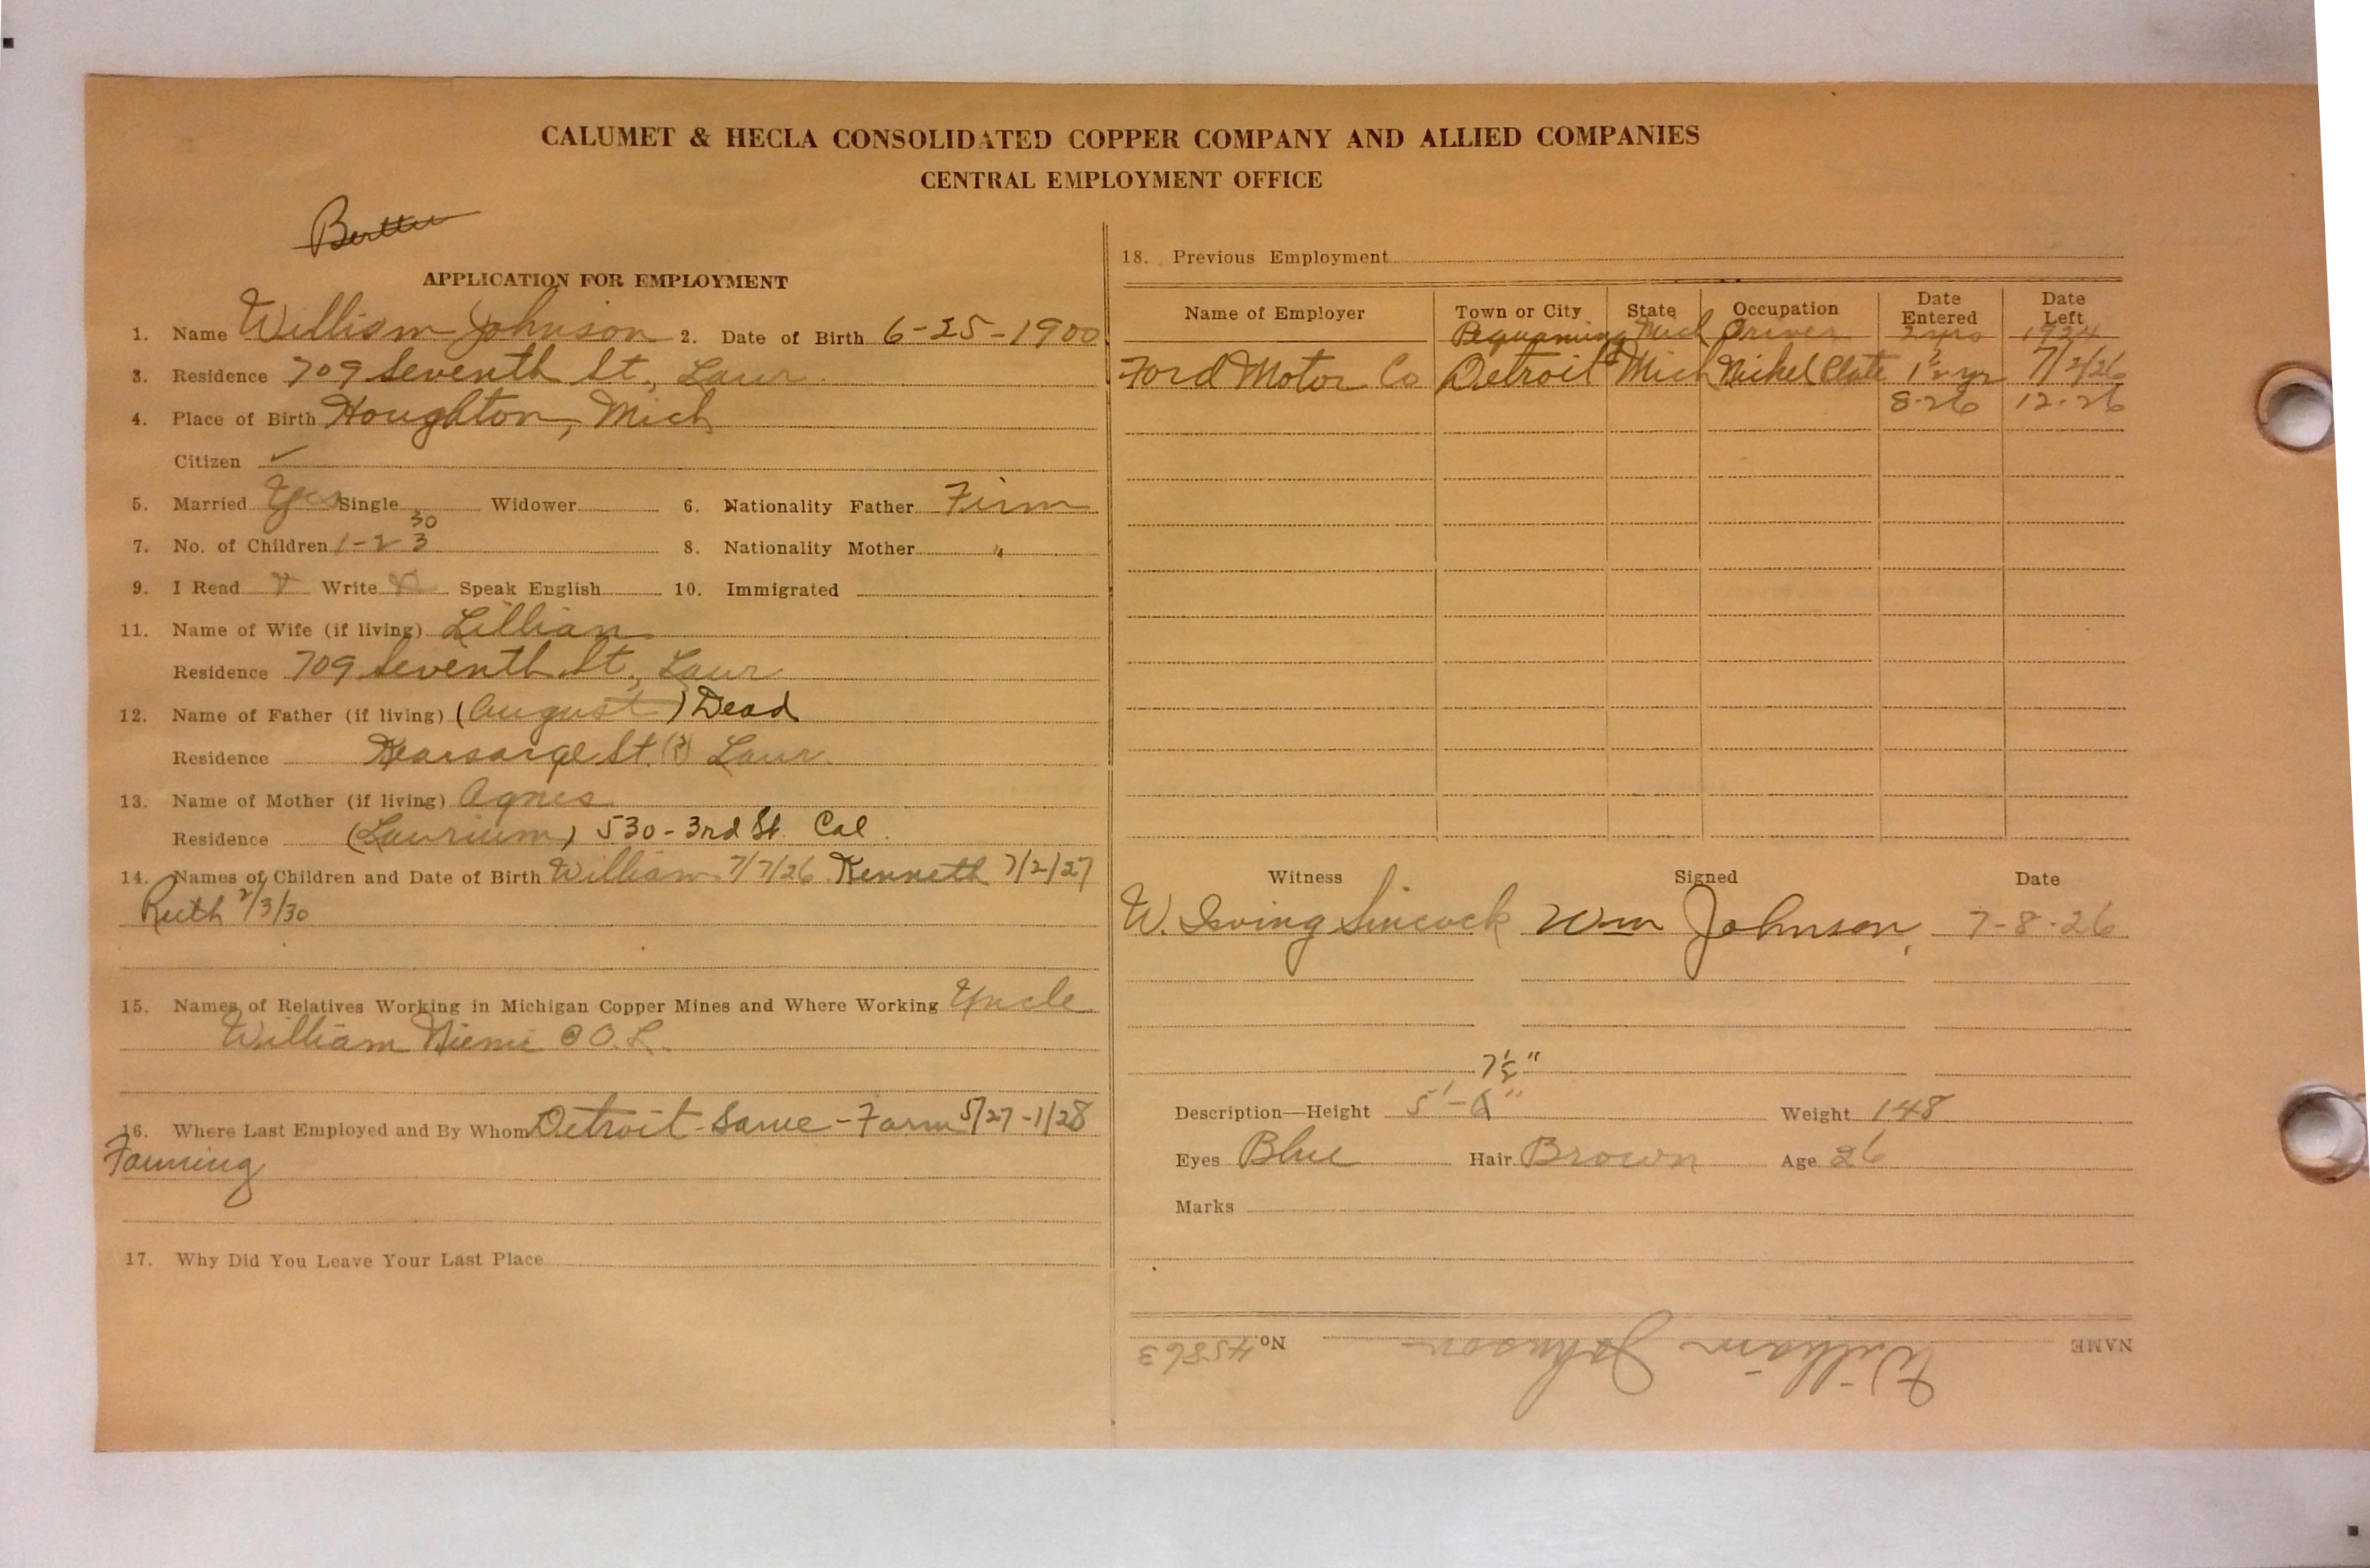 CALUMET & HECLA CONSOLIDATED COPPER COMPANY AND ALLIED COMPANIES
CENTRAL EMPLOYMENT OFFICE
APPLICATION FOR EMPLOYMENT
1. Name William Johnson 2. Date of Birth 6-25-1900
3. Residence 709 Seventh St., Laur.
4. Place of Birth Houghton, Mich
Citizen ✓
5. Married Yes Single Widower 6. Nationality Father Finn
30
7. No. of Children 1-2 3 8. Nationality Mother "
9. I Read Write Speak English 10. Immigrated
11. Name of Wife (if living) Lillian
Residence 709 Seventh St., Laur
12. Name of Father (if living) (August) Dead
Residence Kearsarge St. (?) Laur.
13. Name of Mother (if living) Agnes
Residence (Laurium) 530-3rd St. Cal.
14. Names of Children and Date of Birth William 7/7/26 Kenneth 7/2/27
Ruth 2/3/30
15. Names of Relatives Working in Michigan Copper Mines and Where Working Uncle
William Niemi @ O.L.
16. Where Last Employed and By Whom Detroit-Same-Farm 5/27-1/28
Farming
17. Why Did You Leave Your Last Place
18. Previous Employment
Name of Employer Town or City State Occupation Date Entered Date Left
Pequaming Mich Driver 2 yrs 1924
Ford Motor Co Detroit Mich Nickel Plate 1½ yr 7/2/26
8-26 12-26
Witness Signed Date
W. Irving Sincock Wm Johnson, 7-8-26
7½"
Description—Height 5'- Weight 148
Eyes Blue Hair Brown Age 26
Marks
NAME William Johnson No. 45863